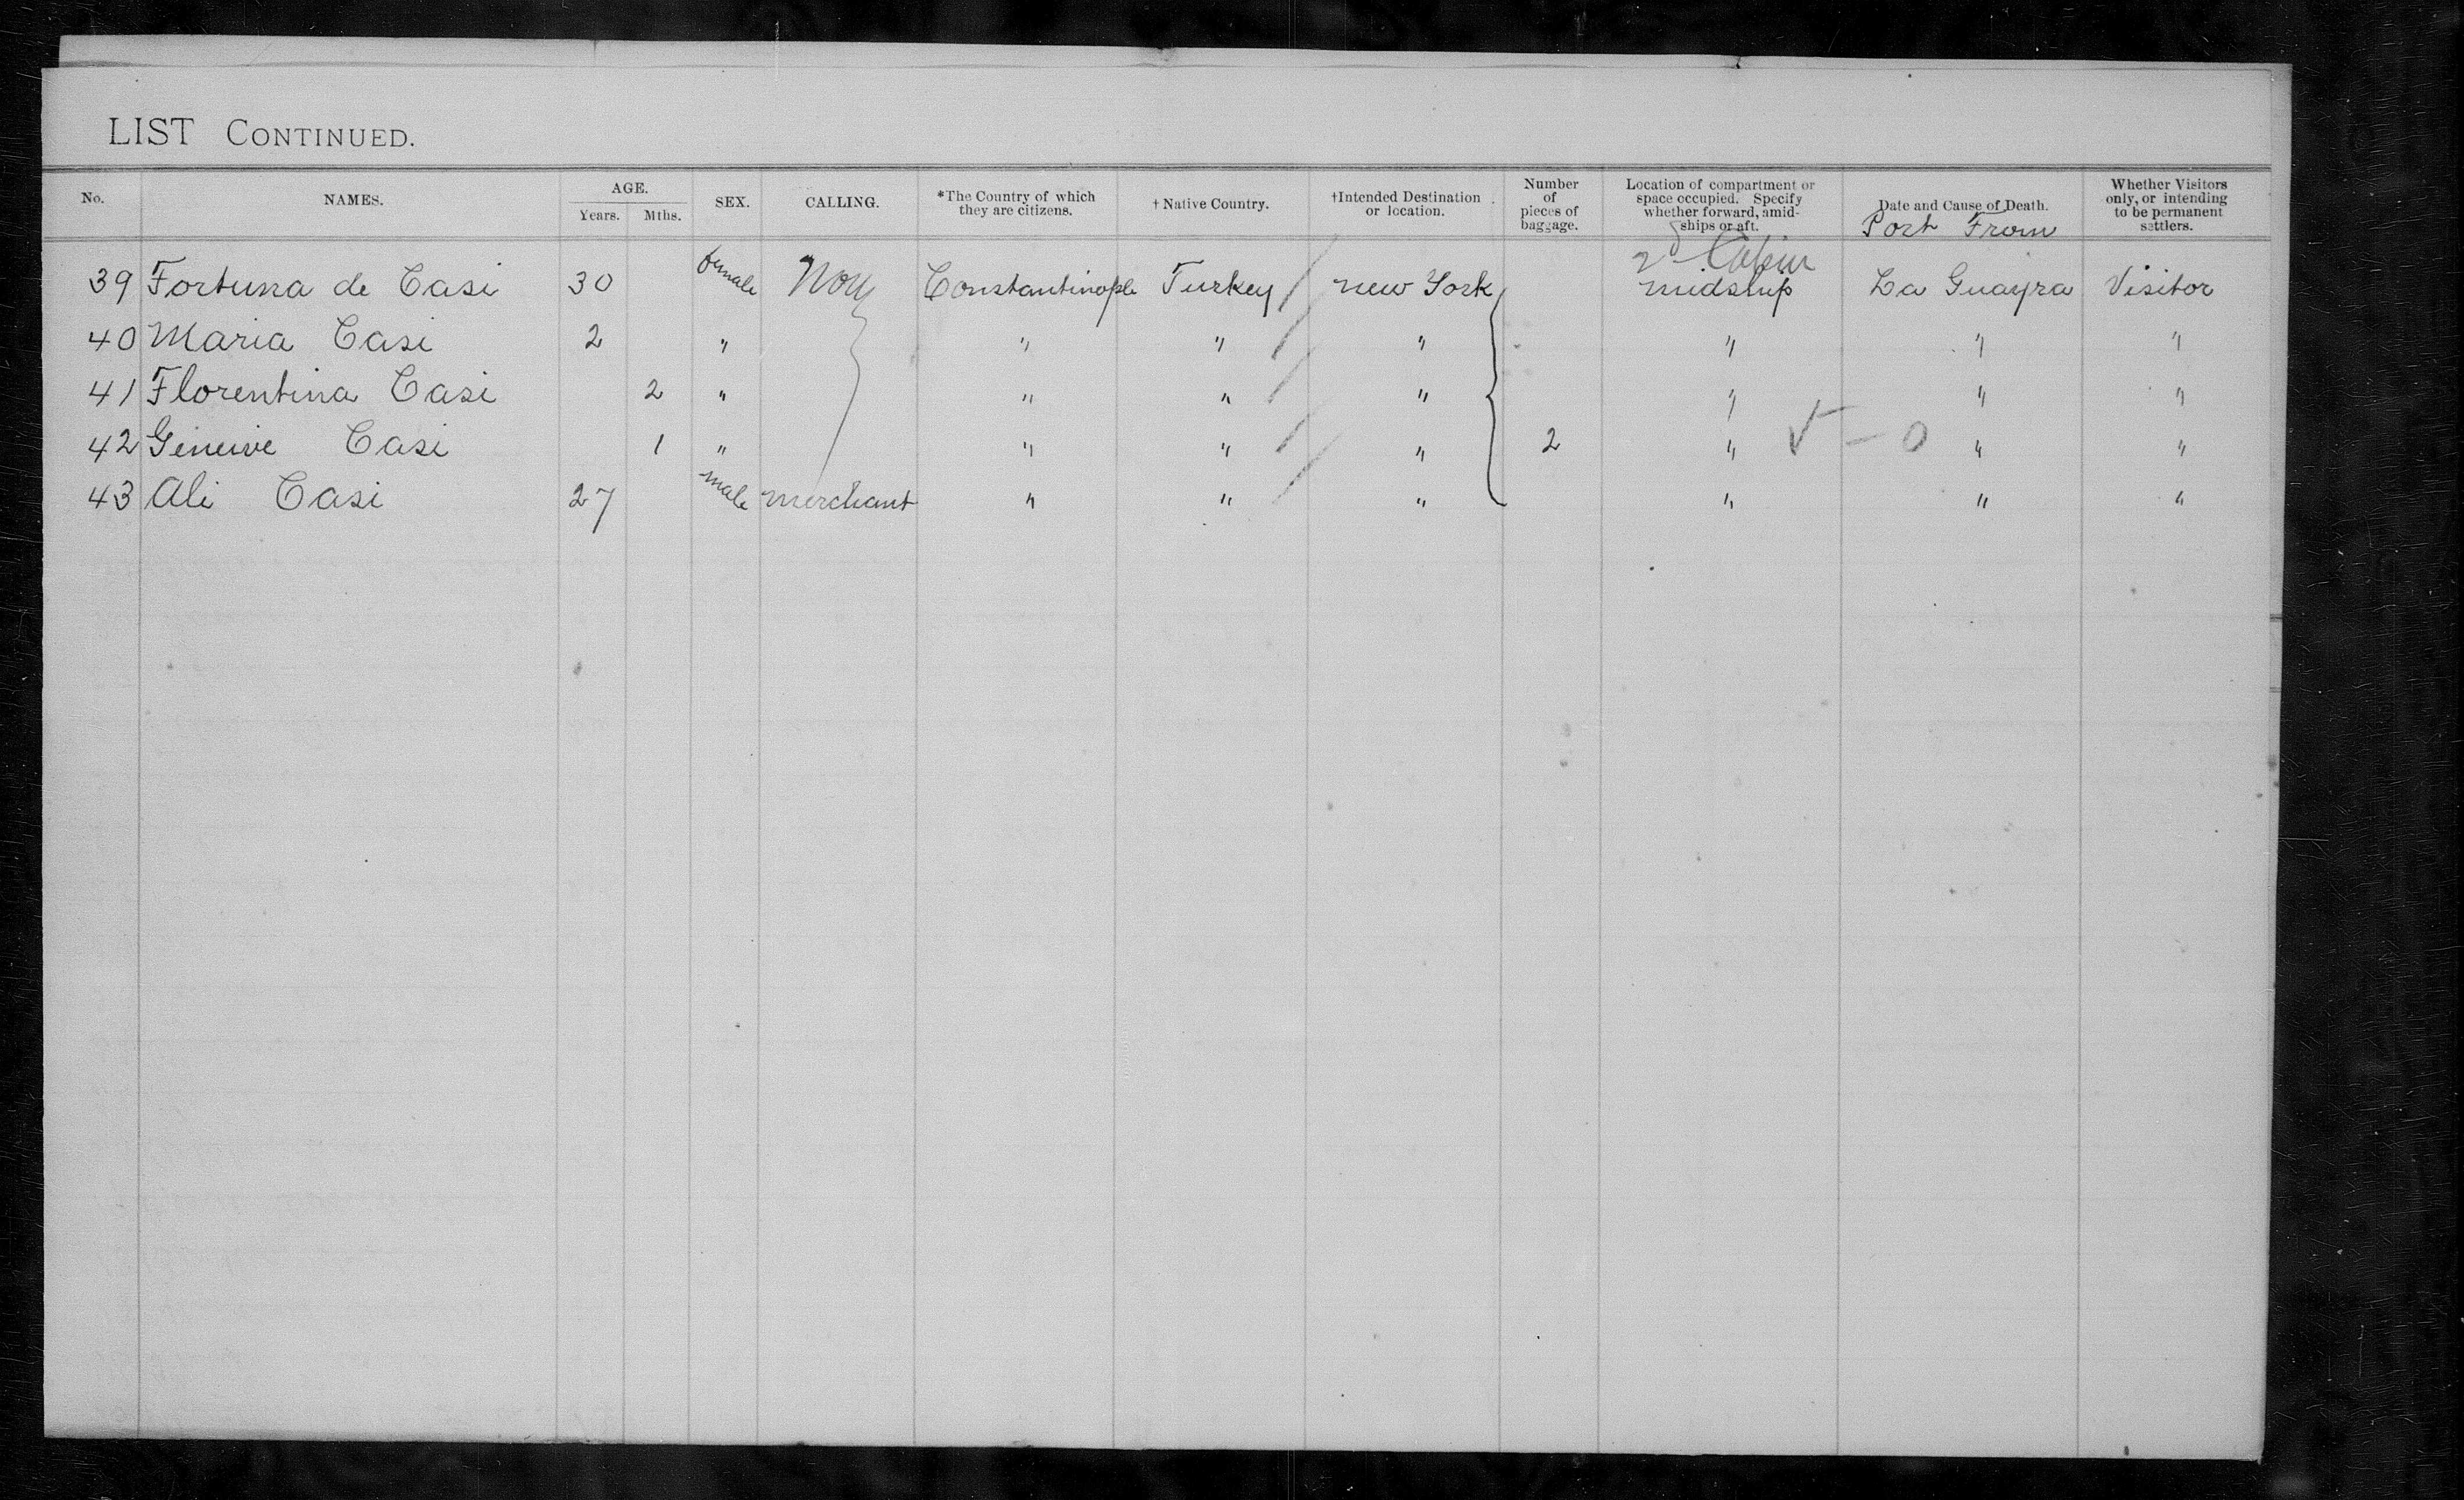 LIST CONTINUED.
No. NAMES. AGE. Years. Mths. SEX. CALLING. *The Country of which they are citizens. † Native Country. †Intended Destination or location. Number of pieces of baggage. Location of compartment or space occupied. Specify whether forward, amid-ships or aft. Date and Cause of Death. Port From Whether Visitors only, or intending to be permanent settlers.
2d Cabin
39 Fortuna de Casi 30 female Constantinople Turkey new York midship La Guayra Visitor
40 Maria Casi 2 " " " " " " "
41 Florentina Casi 2 " " " " " " "
42 Gineive Casi 1 " " " " 2 " √ — 0 " "
43 Ali Casi 27 male merchant " " " " " "